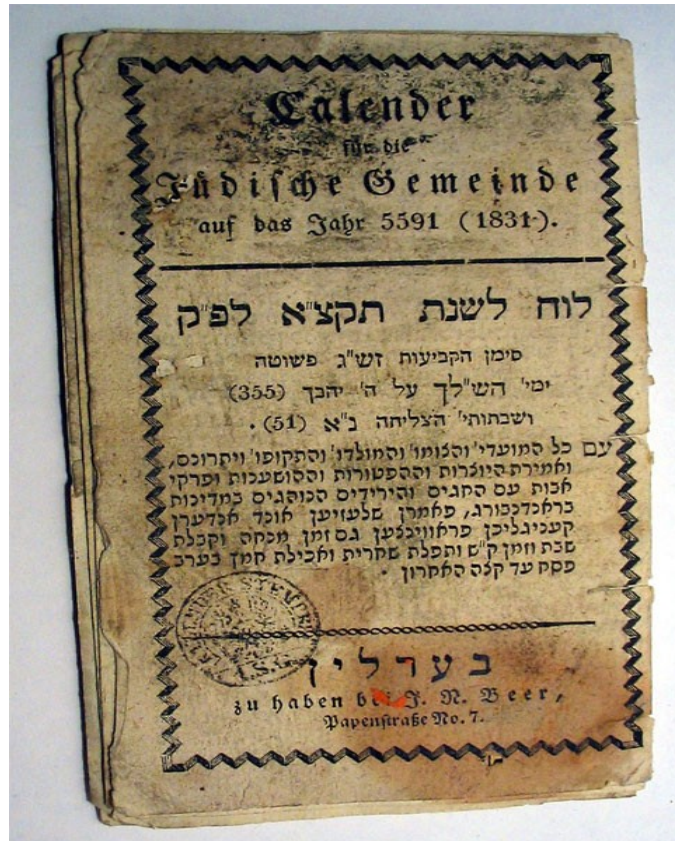 Calender
für die
Jüdische Gemeinde
auf das Jahr 5591 (1831).
לוח לשנת תקצ"א לפ"ק
סימן הקביעות זש"ג פשוטה
ימי' הש"לך על ה' יהבך (355)
ושבתותי' הצליחה נ"א (51).
עם כל המועדי' והצומו' והמולדו' והתקופו' ויתרוכם,
ואמירת היוצרות וההפטורות וההושענות ופרקי
אבות עם החגים והירידים הנוהגים במדינות
בראנדנבורג, פאמרן שלעזיען אונד אנדערן
קעניגליכן פראווינצען גם זמן מנחה וקבלת
שבת וזמן ק"ש ותפלת שחרית ואכילת חמץ בערב
פסח עד קצה האחרון .
בערלין
zu haben bei J. N. Beer,
Papenstraße No. 7.